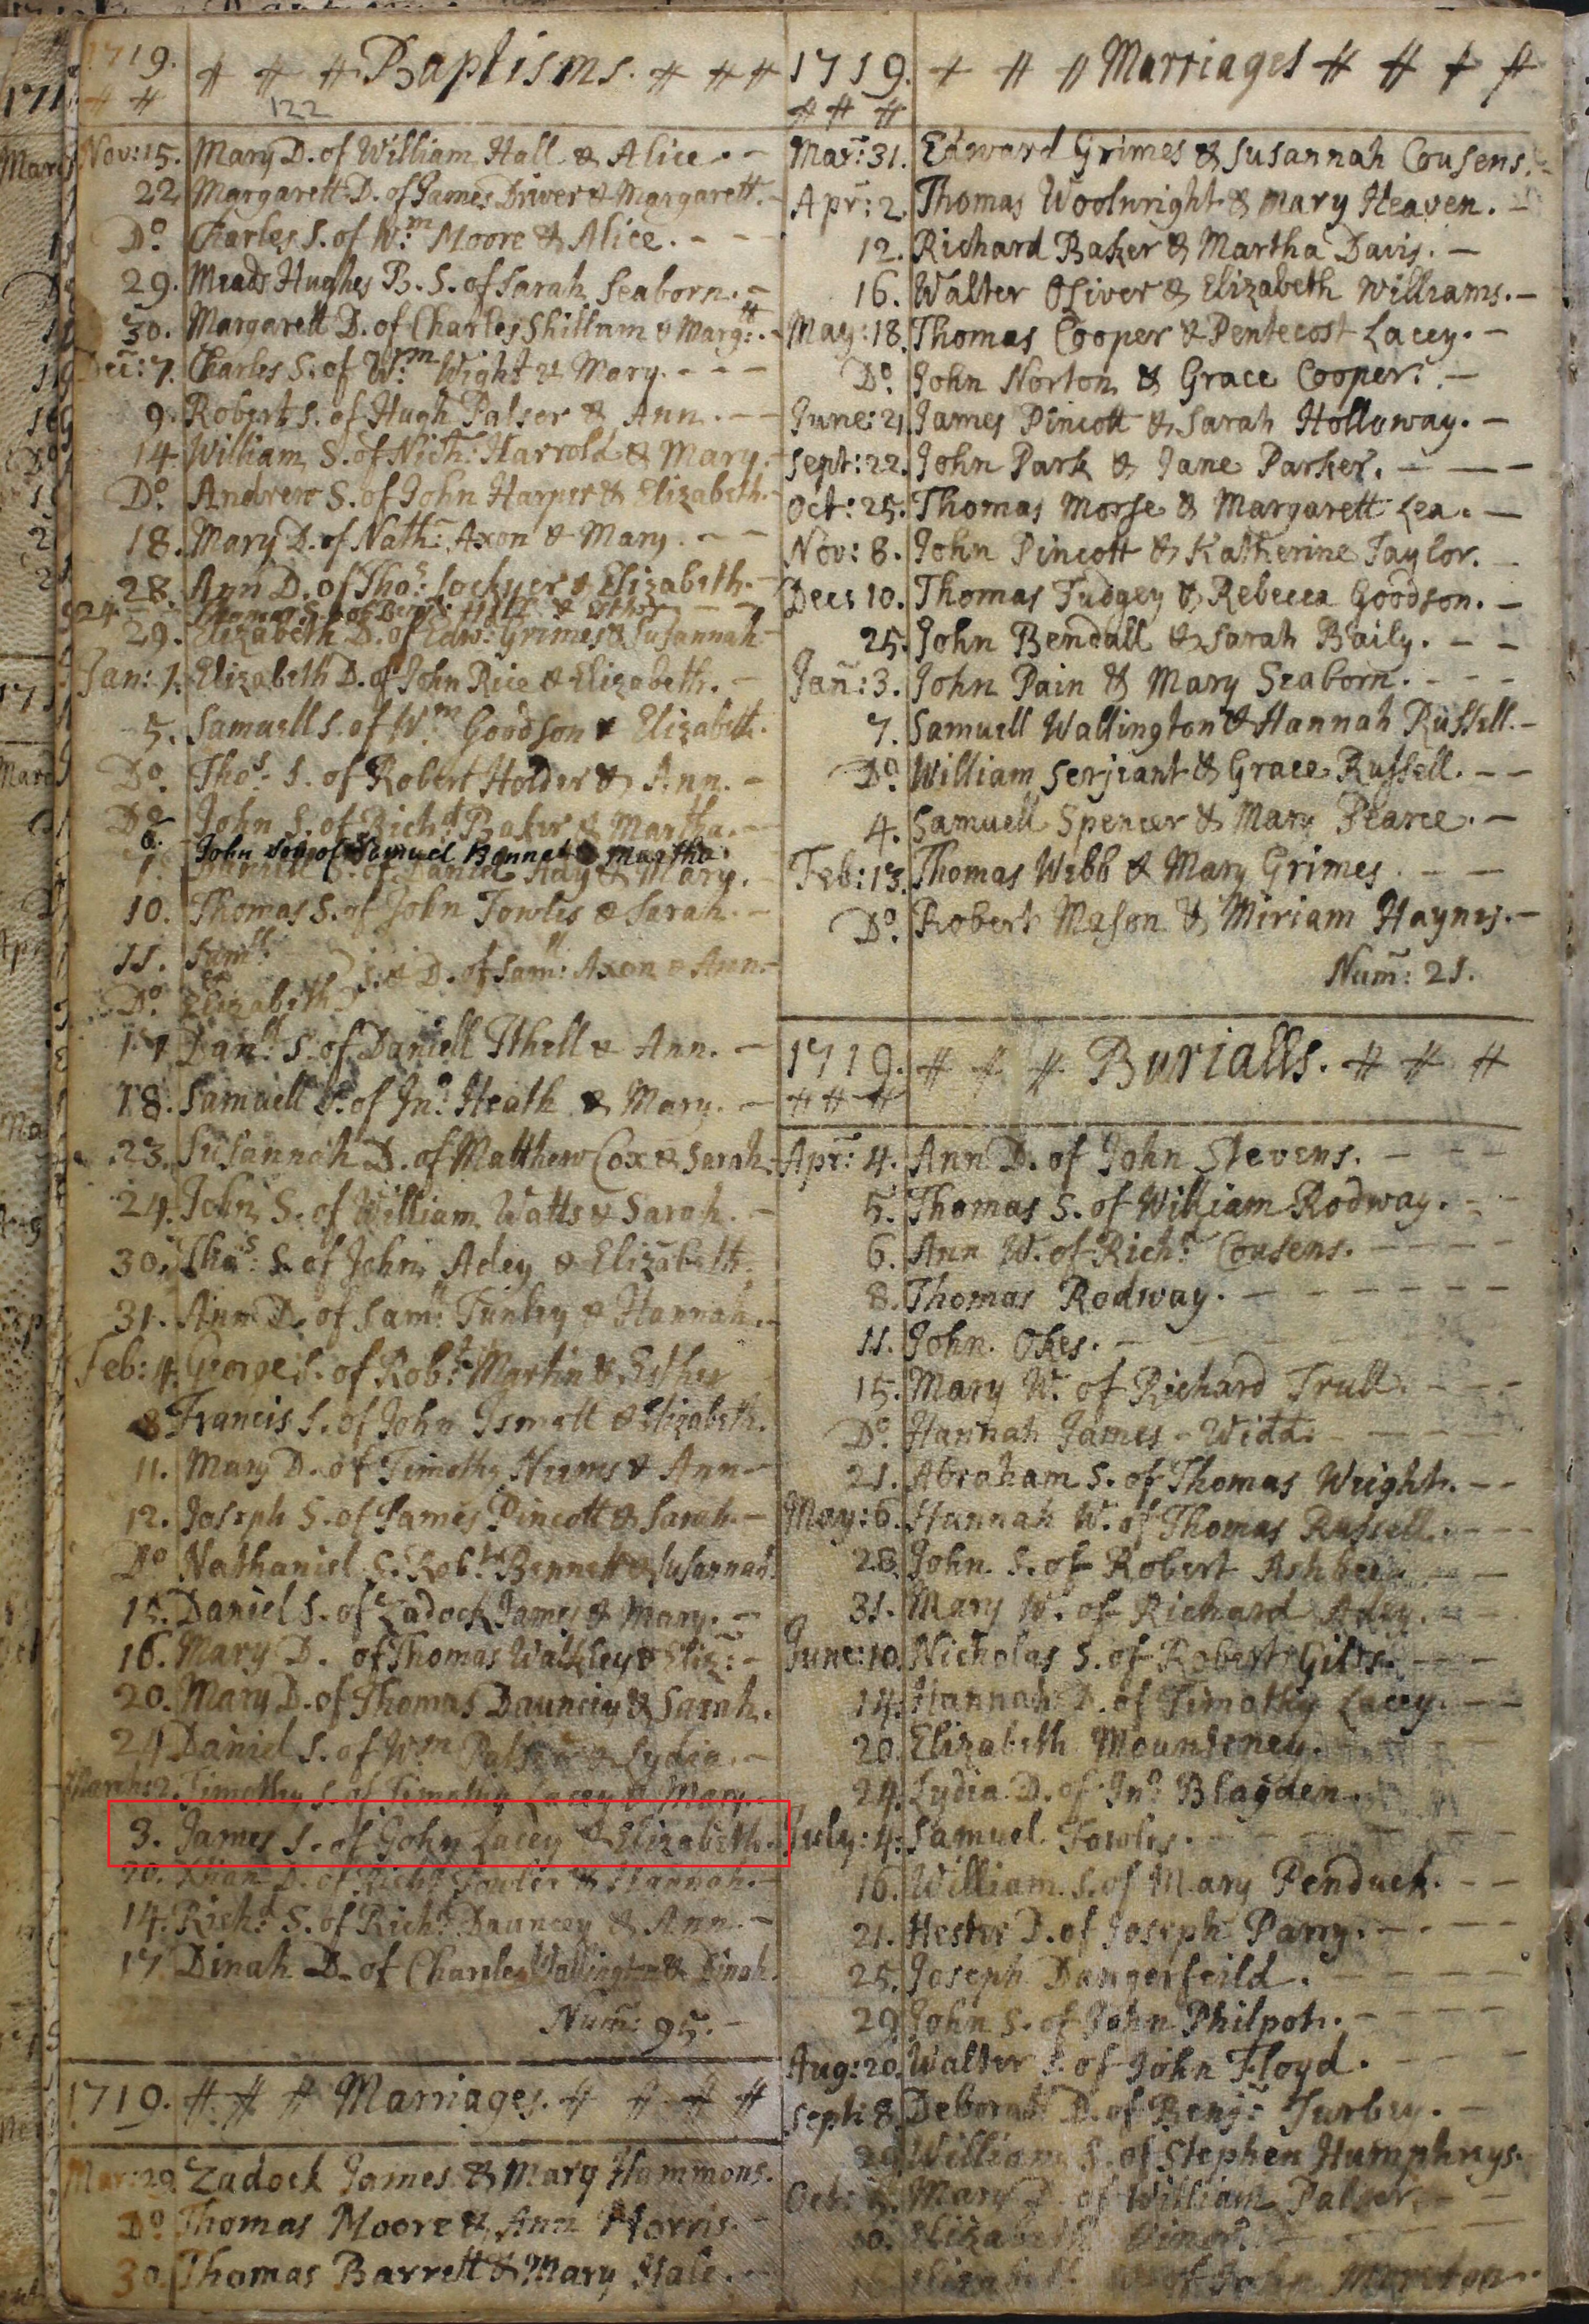 1719. # # # Baptisms. # # #
# #
122
Nov: 15. Mary D. of William Hall & Alice. -
22 Margarett D. of James Driver & Margarett. -
Do. Charles S. of Wm. Moore & Alice. - - -
29. Meads Hughes B. S. of Sarah Seaborn. -
30. Margarett D. of Charles Shillum & Marg:tt. -
Dec: 7. Charles S. of Wm. Wight & Mary. - - -
9. Robert S. of Hugh Palser & Ann. - -
14. William S. of Nich: Harrold & Mary. -
Do. Andrew S. of John Harper & Elizabeth. -
18. Mary D. of Nath: Axon & Mary. - -
28. Ann D. of Thos: Lockyer & Elizabeth. -
24 Thomas S. of Benj: Hill & Esther - - -
29. Elizabeth D. of Edw: Grimes & Susannah -
Jan: 1. Elizabeth D. of John Rice & Elizabeth. -
5. Samuell S. of Wm. Goodson & Elizabeth.
Do. Thos. S. of Robert Holder & Ann. -
Do. John S. of Richd. Baker & Martha. -
6. John son of Samuel Bennet & Martha.
7. Daniell S. of Daniel Ady & Mary.
10. Thomas S. of John Fowles & Sarah. -
11. Samll.
&
Do. Elizabeth
S. & D. of Samll: Axon & Ann. -
17 Danll. S. of Daniell Ithell & Ann. -
18. Samuell S. of Jno. Heath & Mary. -
23. Susannah D. of Matthew Cox & Sarah.
24. John S. of William Watts & Sarah. -
30. Thos: S. of John Adey & Elizabeth.
31. Ann D. of Samll: Tunley & Hannah. -
Feb: 4. George S. of Robt. Martin & Esther
8 Francis S. of John Ismell & Elizabeth.
11. Mary D. of Timothy Neems & Ann -
12. Joseph S. of James Pincott & Sarah. -
Do Nathaniel S. Robt. Bennett & Susannah.
15. Daniel S. of Zadock James & Mary. -
16. Mary D. of Thomas Walkley & Eliz: -
20. Mary D. of Thomas Dauncey & Sarah.
24 Daniel S. of Wm Palser & Lydia. -
March: 2. Timothy S. of Timothy Lacey & Mary. -
3. James S. of John Lacey & Elizabeth.
D. of Richd. Fowler & Hannah. -
14. Richd. S. of Richd. Dauncey & Ann. -
17 Dinah D. of Charles Wallington & Dinah.
Num: 95. -
1719. # # # Marriages. # # # #
Mar: 29. Zadock James & Mary Hammons.
Do Thomas Moore & Ann Norris. -
30. Thomas Barrett & Mary Hale. -
1719. # # # Marriages # # # #
# # #
Mar: 31. Edward Grimes & Susannah Cousens. -
Apr: 2. Thomas Woolwright & Mary Heaven. -
12. Richard Baker & Martha Davis. -
16. Walter Oliver & Elizabeth Williams. -
May: 18. Thomas Cooper & Pentecost Lacey. -
Do. John Norton & Grace Cooper. -
June: 21. James Pincott & Sarah Holloway. -
Sept: 22. John Park & Jane Parker. - - -
Oct: 25. Thomas Morse & Margarett Lea. -
Nov: 8. John Pincott & Katherine Taylor. -
Dec: 10. Thomas Fudgey & Rebecca Goodson. -
25. John Bendall & Sarah Baily. - -
Jan: 3. John Pain & Mary Seaborn. - - -
7. Samuell Wallington & Hannah Russell. -
Do. William Serjeant & Grace Russell. - -
4. Samuell Spencer & Mary Pearce. -
Feb: 13. Thomas Webb & Mary Grimes. - -
Do. Robert Mason & Miriam Haynes. -
Num: 21.
1719. # # # Burialls. # # #
# # #
Apr: 4. Ann D. of John Stevens. - - -
5. Thomas S. of William Rodway. - -
6. Ann W. of Rich: Cousens. - - - -
8. Thomas Rodway. - - - - - -
11. John Okes. -
15. Mary W. of Richard Trull. - - -
Do. Hannah James - Widd: - - - -
21. Abraham S. of Thomas Wright. - -
May: 6. Hannah W. of Thomas Russell. - - -
28 John S. of Robert Ashbee. - -
31. Mary W. of Richard Adey. - -
June: 10. Nicholas S. of Robert Giles. - - -
14. Hannah D. of Timothy Lacey. - -
20. Elizabeth Mounteney. - - -
24. Lydia D. of Jno. Blagden.
July: 4. Samuel Fowles. - - - - - -
16. William S. of Mary Penduck. - -
21. Hester D. of Joseph Parry. - - - -
25. Joseph Dangerfeild. - - - -
29. John S. of John Philpot. - - - -
Aug: 20. Walter S. of John Floyd. - - -
Sept: 8. Deborah D. of Benj: Turbey. -
29. William S. of Stephen Humphrys.
Oct: Mary D. of William Palser. - -
10. Elizabeth
Elizabeth W. of John Morton.